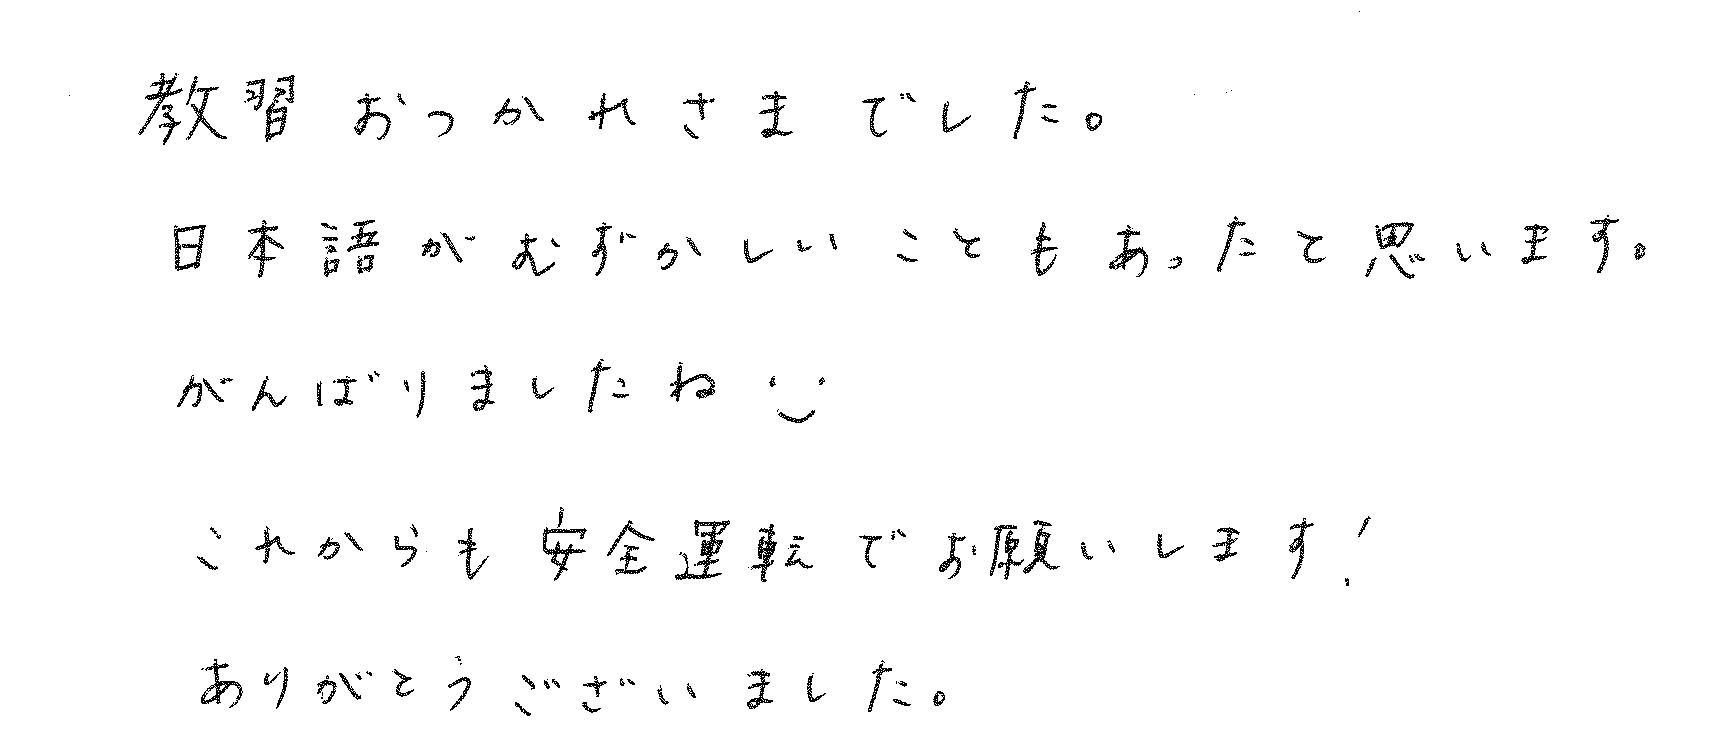 教習おつかれさまでした。
日本語がむずかしいこともあったと思います。
がんばりましたね
これからも安全運転でお願いします!
ありがとうございました。